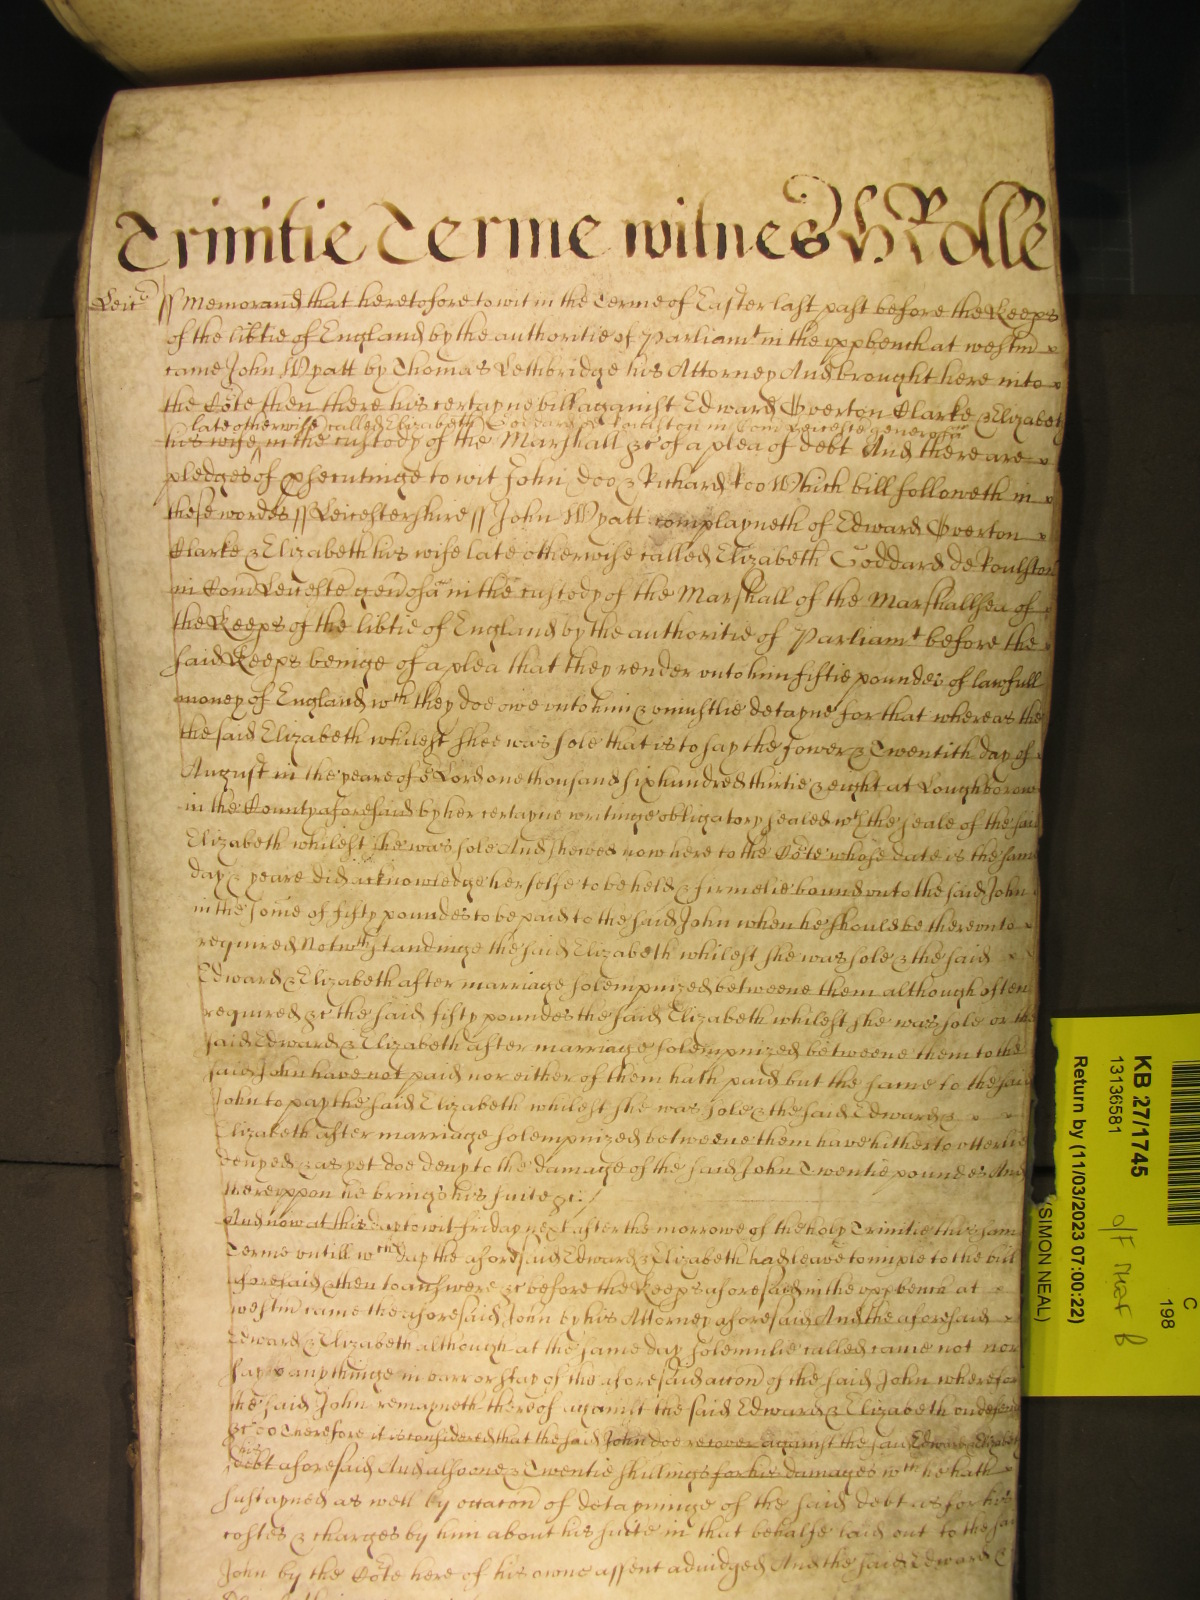 Trinitie Terme witnes H Rolle
Leicr ss Memorand that heretofore to wit in the Terme of Easter last past before the Keeps
of the libtie of England by the authoritie of Parliamt in the vppbench at westm
came John Wyatt by Thomas Lethbridge his Attorney And brought here into
the Cote then there his certayne bill against Edward Overton Clarke & Elizabeth
late otherwise called Elizabeth Goddard de Poulston in Com Leicestr generosa
his wife in the custody of the Marshall &c of a plea of debt And there are
pledges of psecutinge to wit John Doo & Richard Roo Which bill followeth in
these wordes ss Leicestershire ss John Wyatt complayneth of Edward Overton
Clarke & Elizabeth his wife late otherwise called Elizabeth Goddard de Poulston
in Com Leicestr genosa in the custody of the Marshall of the Marshallsea of
the Keeps of the libtie of England by the authoritie of Parliamt before the
said Keeps beinge of a plea that they render vnto him fiftie poundes of lawfull
money of England wch they doe owe vnto him & vniustlie detayne for that whereas the
the said Elizabeth whilest shee was sole that is to say the fower & Twentith day of
August in the yeare of or Lord one thousand six hundred thirtie & eight at Loughborow
in the County aforesaid by her certayne writinge obligatory sealed wth the seale of the said
Elizabeth whilest she was sole And shewed now here to the Cote whose date is the same
day & yeare did acknowledge herselfe to be held & firmelie bound vnto the said John
in the some of fifty poundes to be paid to the said John when he should be therevnto
required Notwthstandinge the said Elizabeth whilest she was sole & the said
Edward & Elizabeth after marriage solempnized betweene them although often
required &c the said fifty poundes the said Elizabeth whilest she was sole or the
said Edward & Elizabeth after marriage solempnized betweene them to the
said John have not paid nor either of them hath paid but the same to the said
John to pay the said Elizabeth whilest she was sole & the said Edward &
Elizabeth after marriage solempnized betweene them have hitherto vtterlie
denyed & as yet doe deny to the damage of the said John Twentie poundes And
therevppon he brings his suite &c
And now at this day to wit friday next after the morrowe of the holy Trinitie this same
Terme vntill wch day the aforesaid Edward & Elizabeth had leave to imple to the bill
aforesaid & then to answere &c before the Keeps aforesaid in the vppbench at
westm came the aforesaid John by his Attorney aforesaid And the aforesaid
Edward & Elizabeth although at the same day solemnlie called came not nor
say anythinge in barr or stay of the aforesaid accon of the said John wherefore
the said John remayneth thereof against the said Edward & Elizabeth vndefend
&c Therefore it is considered that the said John doe recover against the said Edward & Elizabeth
his
debt aforesaid And alsoe one & Twentie shillings for his damages wch he hath
sustayned as well by occacon of detayninge of the said debt as for his
costes & charges by him about his suite in that behalfe laid out to the said
John by the Cote here of his owne assent adiudged And the said Edward &
C
198
KB 27/1745
13136581
Return by (11/03/2023 07:00:22)
(SIMON NEAL)